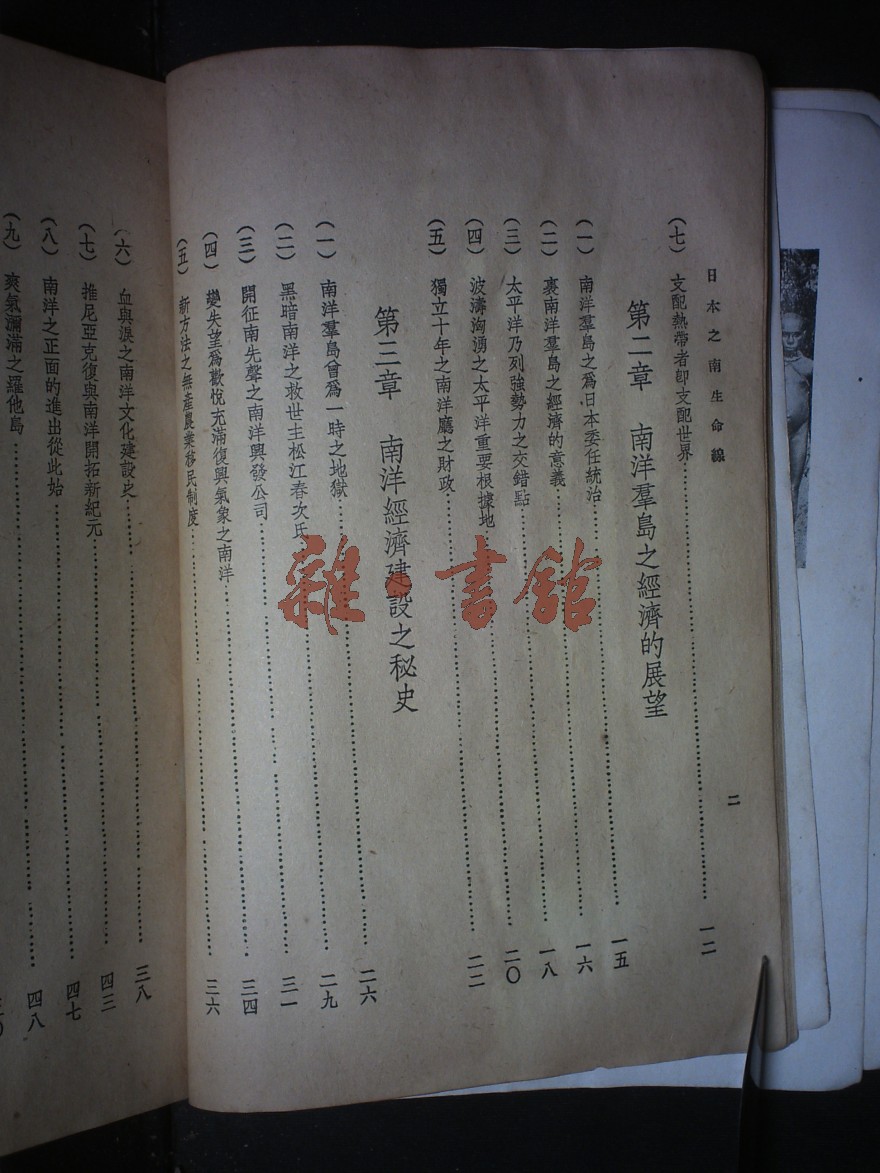 日本之南生命線
二
（七） 支配熱帶者卽支配世界……一二
第二章 南洋羣島之經濟的展望
（一） 南洋羣島之爲日本委任統治……一五
（二） 裹南洋羣島之經濟的意義……一六
（三） 太平洋乃列強勢力之交錯點……一八
（四） 波濤洶湧之太平洋重要根據地……二〇
（五） 獨立十年之南洋廳之財政……二二
第三章 南洋經濟建設之秘史
（一） 南洋羣島曾爲一時之地獄……二六
（二） 黑暗南洋之救世主松江春次氏……二九
（三） 開征南先聲之南洋興發公司……三一
（四） 變失望爲歡悅充滿復興氣象之南洋……三四
（五） 新方法之無產農業移民制度……三六
（六） 血與淚之南洋文化建設史……三八
（七） 推尼亞克復與南洋開拓新紀元……四三
（八） 南洋之正面的進出從此始……四七
（九） 爽氣瀰滿之羅他島……四八
雜·書館